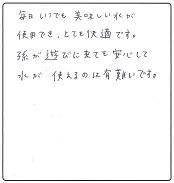 毎日いつでも美味しい水が
使用でき、とても快適です。
孫が遊びに来ても安心して
水が使えるのは有難いです。